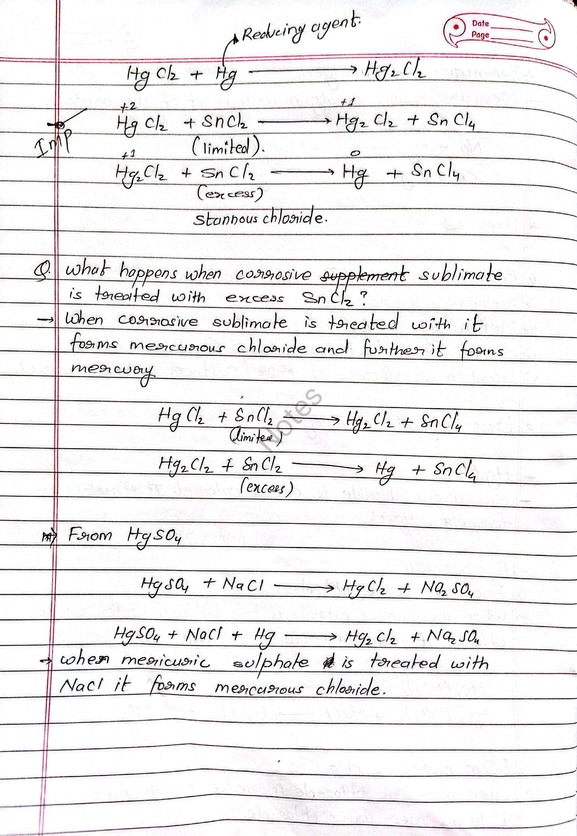 Reducing agent.
Date
Page
HgCl2 + Hg ⟶ Hg2Cl2
+2 +1
HgCl2 + SnCl2 ⟶ Hg2Cl2 + SnCl4
IMP (limited).
+1 0
Hg2Cl2 + SnCl2 ⟶ Hg + SnCl4
(excess)
Stannous chloride.
Q. what happens when corrosive supplement sublimate
is treated with excess SnCl2?
→ when corrosive sublimate is treated with it
forms mercurous chloride and further it forms
mercury.
HgCl2 + SnCl2 ⟶ Hg2Cl2 + SnCl4
(limited)
Notes
Hg2Cl2 + SnCl2 ⟶ Hg + SnCl4
(excess)
From HgSO4
HgSO4 + NaCl ⟶ HgCl2 + Na2SO4
HgSO4 + NaCl + Hg ⟶ Hg2Cl2 + Na2SO4
→ when mericuric sulphate is treated with
NaCl it forms mercurous chloride.